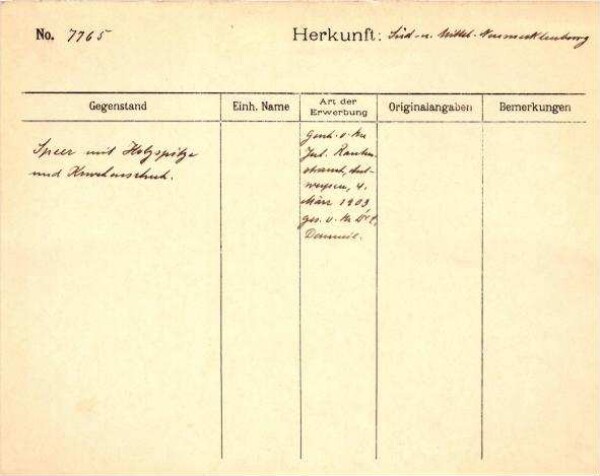 No. 7765 Herkunft: Süd- u. Mittel-Neumecklenburg
Gegenstand Einh. Name Art der Erwerbung Originalangaben Bemerkungen
Speer mit Holzspitze
und Knochenschuh.
Gesch. v. Hrn
Jul. Rauten-
strauch, Ant-
werpen, 4.
März 1903
ges. v. Hr